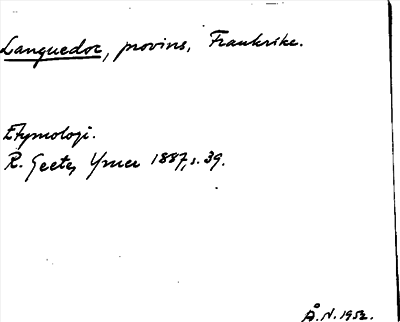 Languedoc, provins, Frankrike.
Etymologi.
R. Geete, Ymer 1887, s. 39.
Å. N. 1952.